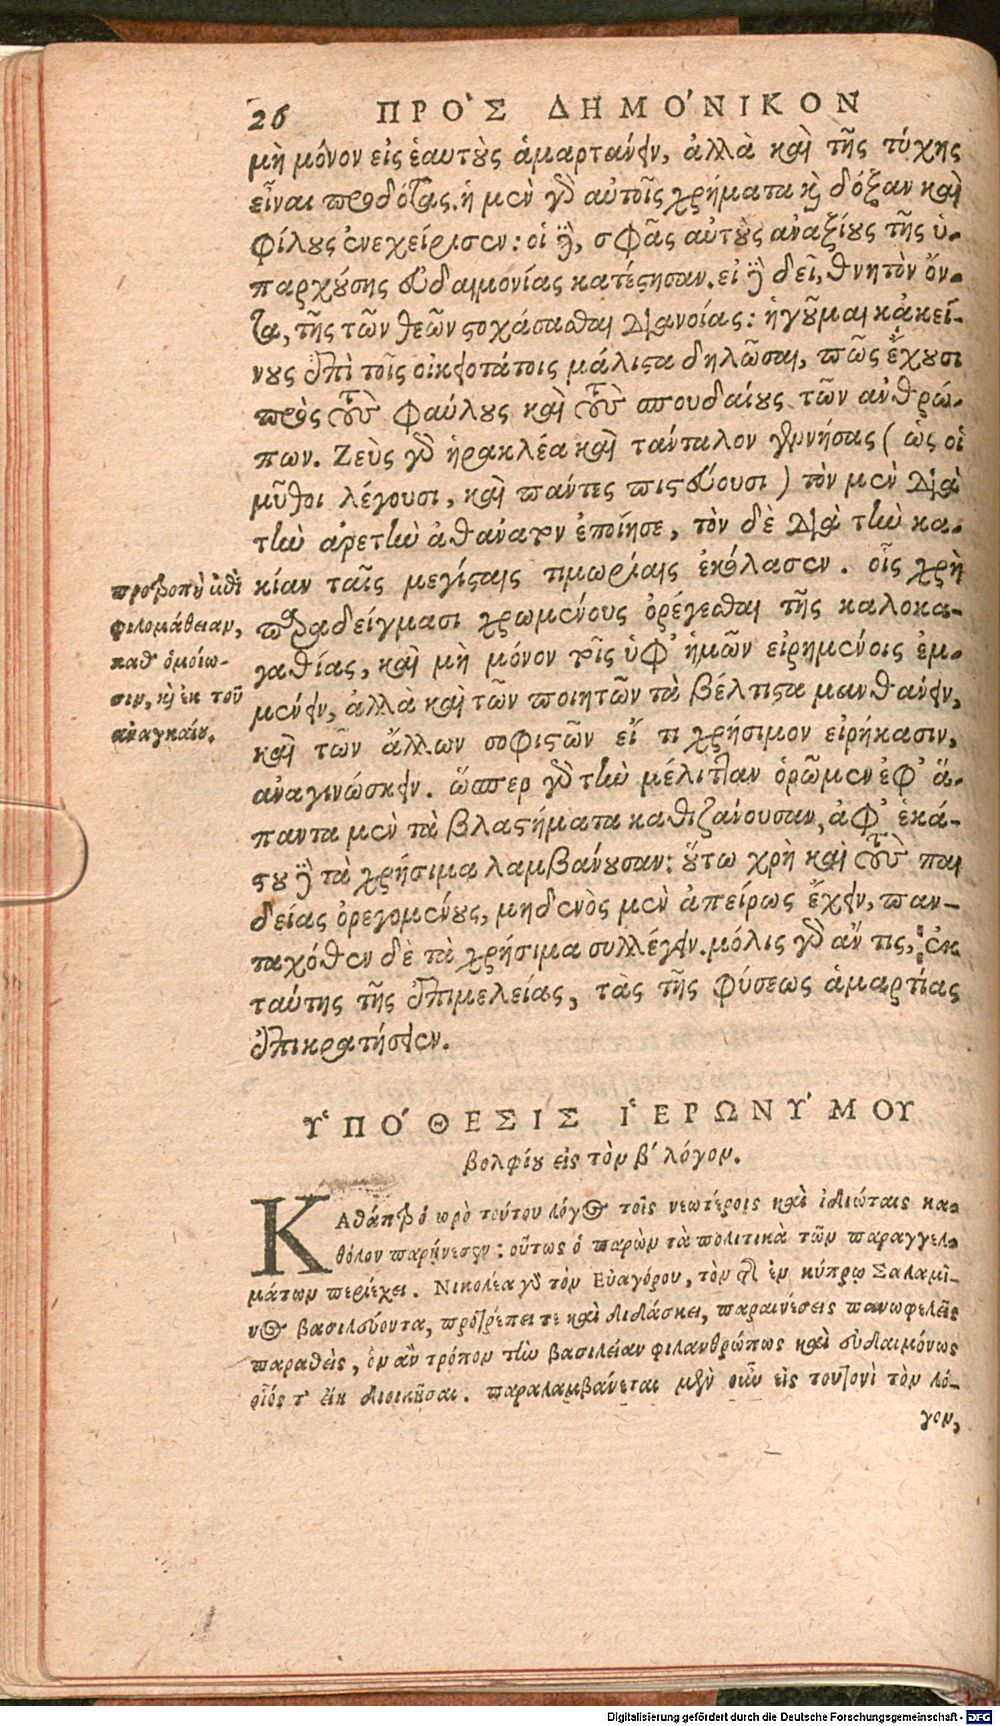 26 ΠΡῸΣ ΔΗΜΌΝΙΚΟΝ
μὴ μόνον εἰς ἑαυτοὺς ἁμαρτάνειν, ἀλλὰ καὶ τῆς τύχης
εἶναι προδότας. ἡ μὲν γὸ αὐτοῖς χρήματα κỳ δόξαν καὶ
φίλους ἐνεχείρισεν: οἱ δὲ, σφᾶς αὐτοὺς ἀναξίους τῆς ὑ-
παρχούσης εὐδαιμονίας κατέστησαν. εἰ δὲ δεῖ, θνητὸν ὄν-
τα, τῆς τῶν θεῶν στοχάσασθαι διανοίας: ἡγοῦμαι κἀκεί-
νους ἐπὶ τοῖς οἰκειοτάτοις μάλιστα δηλῶσαι, πῶς ἔχουσι
πρὸς τοὺς φαύλους καὶ τοὺς σπουδαίους τῶν ἀνθρώ-
πων. Ζεὺς γὸ ἡρακλέα καὶ τάνταλον γεννήσας (ὡς οἱ
μῦθοι λέγουσι, καὶ πάντες πιστεύουσι) τὸν μὲν διὰ
τὴν ἀρετὴν ἀθάνατον ἐποίησε, τὸν δὲ διὰ τὴν κα-
κίαν ταῖς μεγίσταις τιμωρίαις ἐκόλασεν. οἷς χρὴ
παραδείγμασι χρωμένους ὀρέγεσθαι τῆς καλοκα-
γαθίας, καὶ μὴ μόνον τοῖς ὑφ' ἡμῶν εἰρημένοις ἐμ-
μένειν, ἀλλὰ καὶ τῶν ποιητῶν τὰ βέλτιστα μανθάνειν,
καὶ τῶν ἄλλων σοφιστῶν εἴ τι χρήσιμον εἰρήκασιν,
ἀναγινώσκειν. ὥσπερ γὸ τὴν μέλιτταν ὁρῶμεν ἐφ' ἅ-
παντα μὲν τὰ βλαστήματα καθιζάνουσαν, ἀφ' ἑκά-
στου δὲ τὰ χρήσιμα λαμβάνουσαν: οὕτω χρὴ καὶ τοὺς παι
δείας ὀρεγομένους, μηδενὸς μὲν ἀπείρως ἔχειν, παν-
ταχόθεν δὲ τὰ χρήσιμα συλλέγειν. μόλις γὸ ἄν τις, ἐκ
ταύτης τῆς ἐπιμελείας, τὰς τῆς φύσεως ἁμαρτίας
ἐπικρατήσειεν.
προτροπὴ
φιλομάθειαν,
καθ' ὁμοίω-
σιν, κỳ ἐκ τοῦ
ἀναγκαίου.
ΥΠΌΘΕΣΙΣ ἹΕΡΩΝΎΜΟΥ
βολφίου εἰς τὸν β' λόγον.
ΚΑθάπερ ὁ πρὸ τούτου λόγος τοῖς νεωτέροις καὶ ἰδιώταις κα-
θόλου παρῄνεσεν: οὕτως ὁ παρὼν τὰ πολιτικὰ τῶν παραγγελ-
μάτων περιέχει. Νικολέα γὸ τὸν Εὐαγόρου, τὸν δὴ ἐν κύπρῳ Σαλαμῖ-
νος βασιλεύοντα, προτρέπει τε καὶ διδάσκει, παραινέσεις πανωφελεῖς
παραθεὶς, ὃν ἂν τρόπον τὴν βασιλείαν φιλανθρώπως καὶ εὐδαιμόνως
οἷός τ' εἴη διοικῆσαι. παραλαμβάνεται μὲν οὖν εἰς τουτονὶ τὸν λό-
γον,
Digitalisierung gefördert durch die Deutsche Forschungsgemeinschaft - DFG